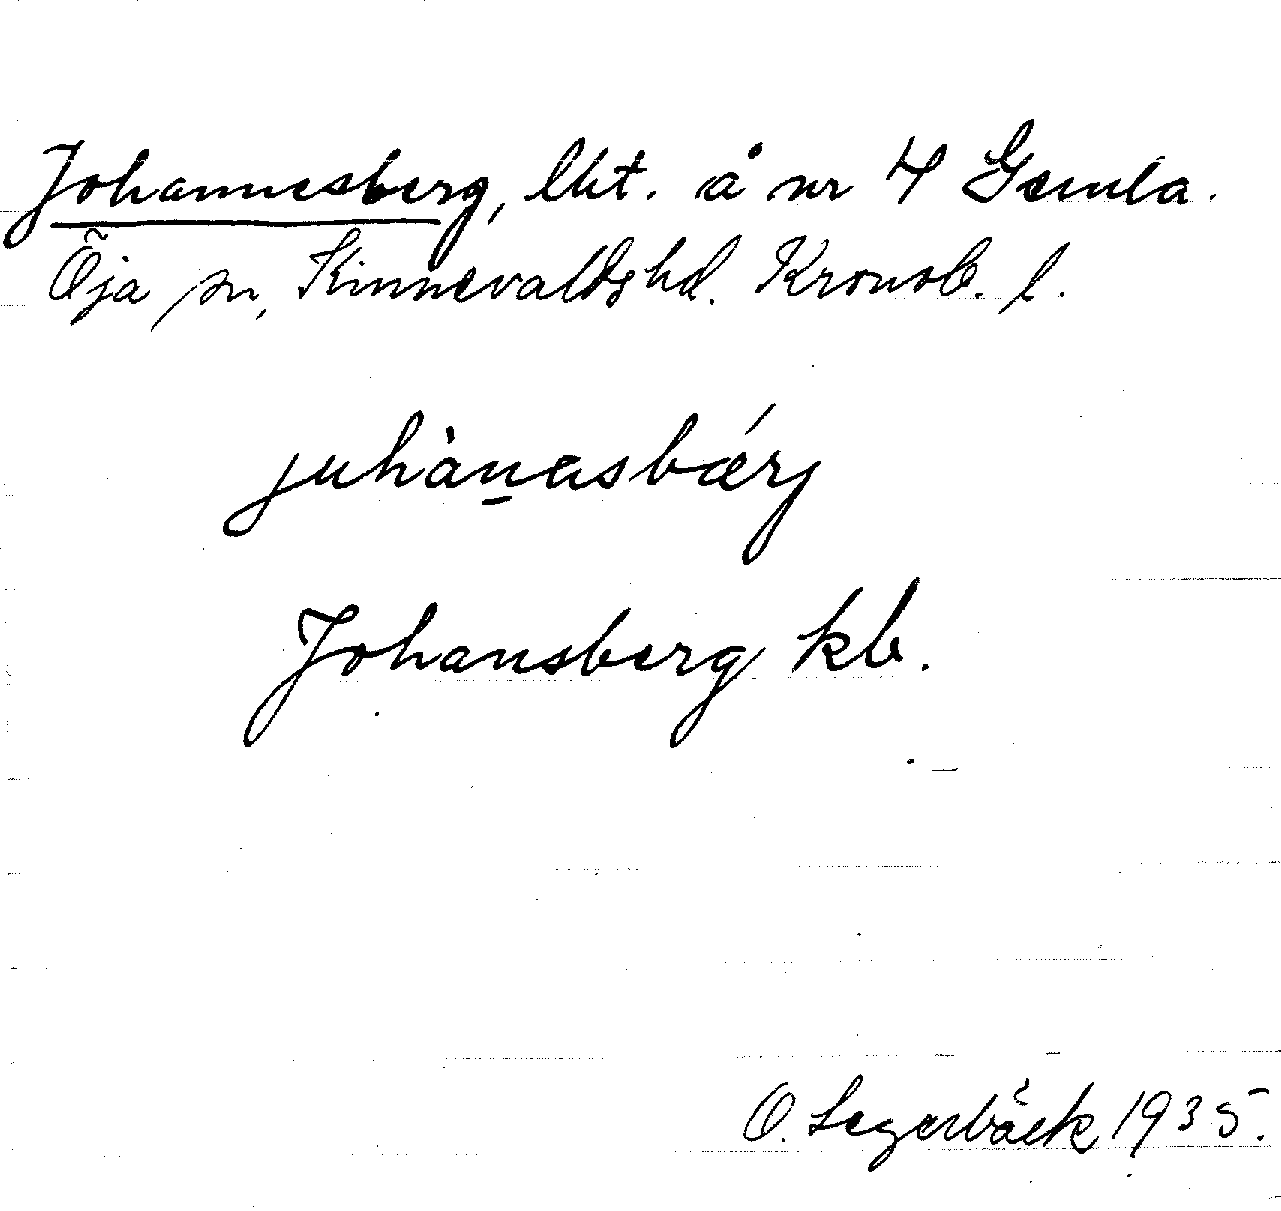 Johannesberg, lht. å nr 4 Gemla.
Öja sn, Kinnevalds hd. Kronob. l.
juhànasbærj
Johansberg kb.
O. Segerbäck 1935.